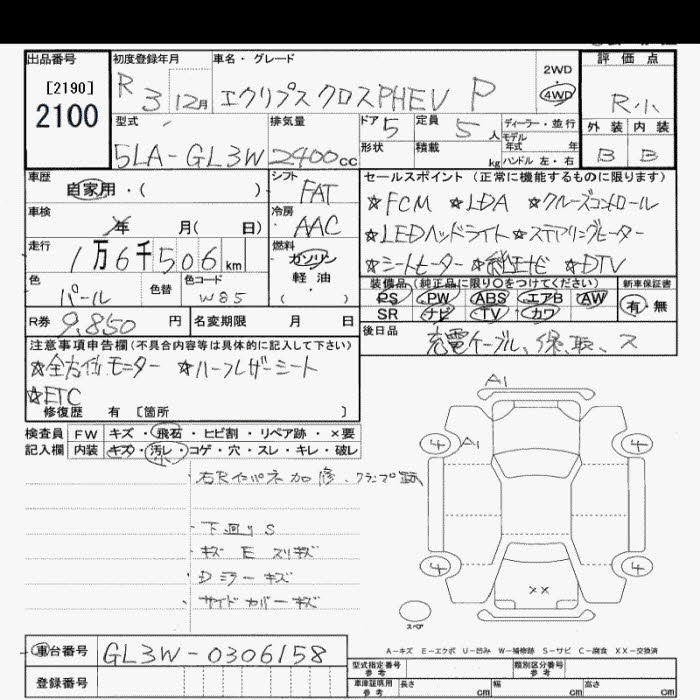 出品番号 初度登録年月 車名・グレード 評価点
[2190] R 3 12月 エクリプス クロスPHEV P 2WD 4WD R小
2100 型式 排気量 ドア 5 定員 5 人 ディーラー・並行 外装 内装
形状 積載 kg モデル年式 年 B B
5LA-GL3W 2400cc ハンドル 左・右
車歴 自家用・( ) シフト FAT セールスポイント (正常に機能するものに限ります)
☆FCM ☆LDA ☆クルーズコントロール
車検 年 月( 日) 冷房 AAC
☆LEDヘッドライト ☆ステアリングヒーター
走行 1万6千506km 燃料 ガソリン 軽油 ( )
☆シートヒーター ☆純正ナビ ☆DTV
色 パール 色替 色コード W85 装備品(純正品に限り○をつけてください) 新車保証書
PS PW ABS エアB AW 有・無
SR ナビ TV カワ
R券 9,850円 名変期限 月 日 後日品 充電ケーブル、保、取、ス
注意事項申告欄(不具合内容等は具体的に記入して下さい)
☆全方位モーター ☆ハーフレザーシート
☆ETC
修復歴 有 [箇所 ]
検査員 FW キズ・飛石・ヒビ割・リペア跡・×要
記入欄 内装 キズ・汚レ・コゲ・穴・スレ・キレ・破レ
右Rインパネ加修、クランプ跡
下廻りS
キズ E スリキズ
Dミラーキズ
サイドカバーキズ
A1
4 A1 4
4 4
××
スペア
A-キズ E-エクボ U-凹み W-補修跡 S-サビ C-腐食 XX-交換済
車台番号 GL3W-0306158
登録番号
型式指定番号 参考 類別区分番号 参考
車庫証明用 参考 長さ cm 幅 cm 高さ cm